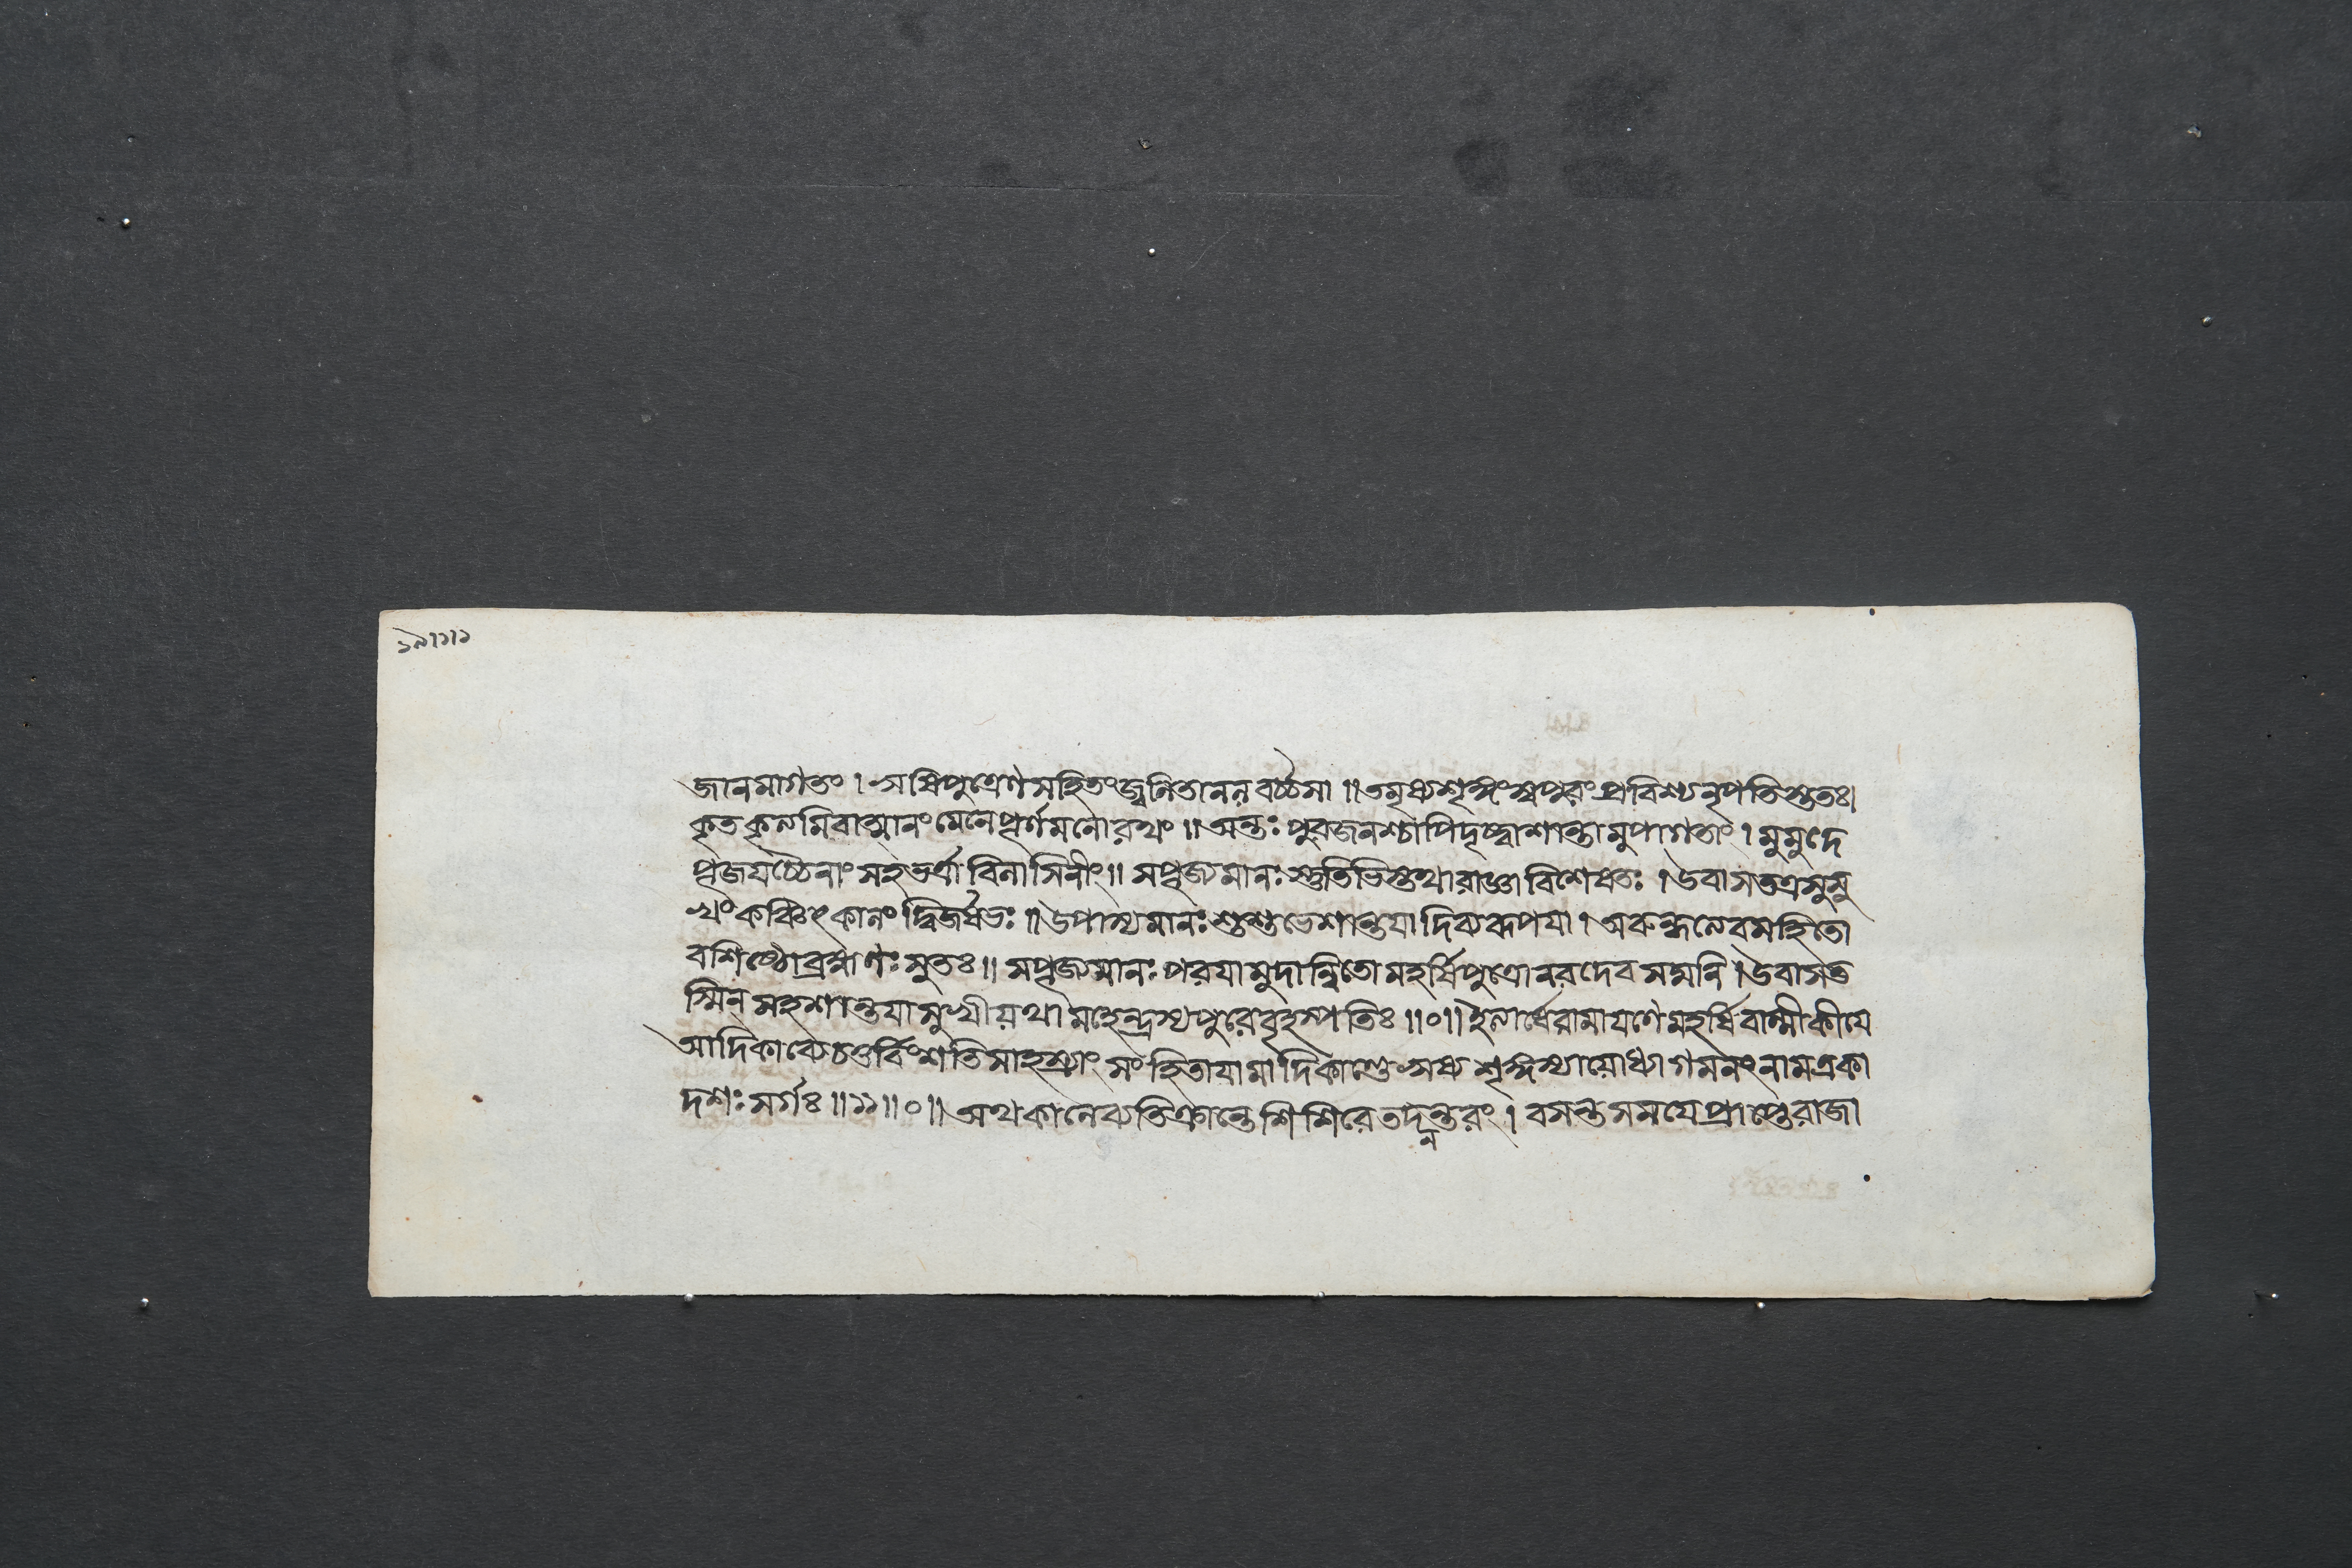 ১৯।১।১
জানমাগতং । ঋষিপুত্রেণ সহিতং জ্বলিতানলবর্চ্চসা ॥ তমৃষ্যশৃঙ্গং স্বপুরং প্রবিশ্য নৃপতিস্ততঃ।
কৃতকৃত্যমিবাত্মানং মেনে পূর্ণমনোরথং ॥ অন্তঃপুরজনশ্চাপি দৃষ্ট্বা শান্তামুপাগতাং । মুমুদে
পূজয়চ্চৈনাং সহভর্ত্রা বিলাসিনীং ॥ সপূজ্যমানঃ স্তুতিভিস্তথা রাজ্ঞা বিশেষতঃ । উবাস তত্র সুসু
খং কঞ্চিৎকালং দ্বিজর্ষভঃ ॥ উপাস্যমানঃ শুশুভে শান্তয়া দিব্যরূপয়া । অরুন্ধত্যেব সহিতো
বশিষ্ঠো ব্রহ্মণঃ সুতঃ ॥ সপূজ্যমানঃ পরয়া মুদান্বিতো মহর্ষিপুত্রো নরদেবসদ্মনি । উবাস ত
স্মিন্ সহ শান্তয়া সুখী যথা মহেন্দ্রস্য পুরে বৃহস্পতিঃ ॥০॥ ইত্যার্ষে রামায়ণে মহর্ষিবাল্মীকীয়ে
আদিকাব্যে চতুর্বিংশতিসাহস্র্যাং সংহিতায়ামাদিকাণ্ডে ঋষ্যশৃঙ্গস্যাযোধ্যাগমনং নাম একা
দশঃ সর্গঃ ॥১১॥০॥ অথ কালে ব্যতিক্রান্তে শিশিরে তদনন্তরং । বসন্তসময়ে প্রাপ্তে রাজা